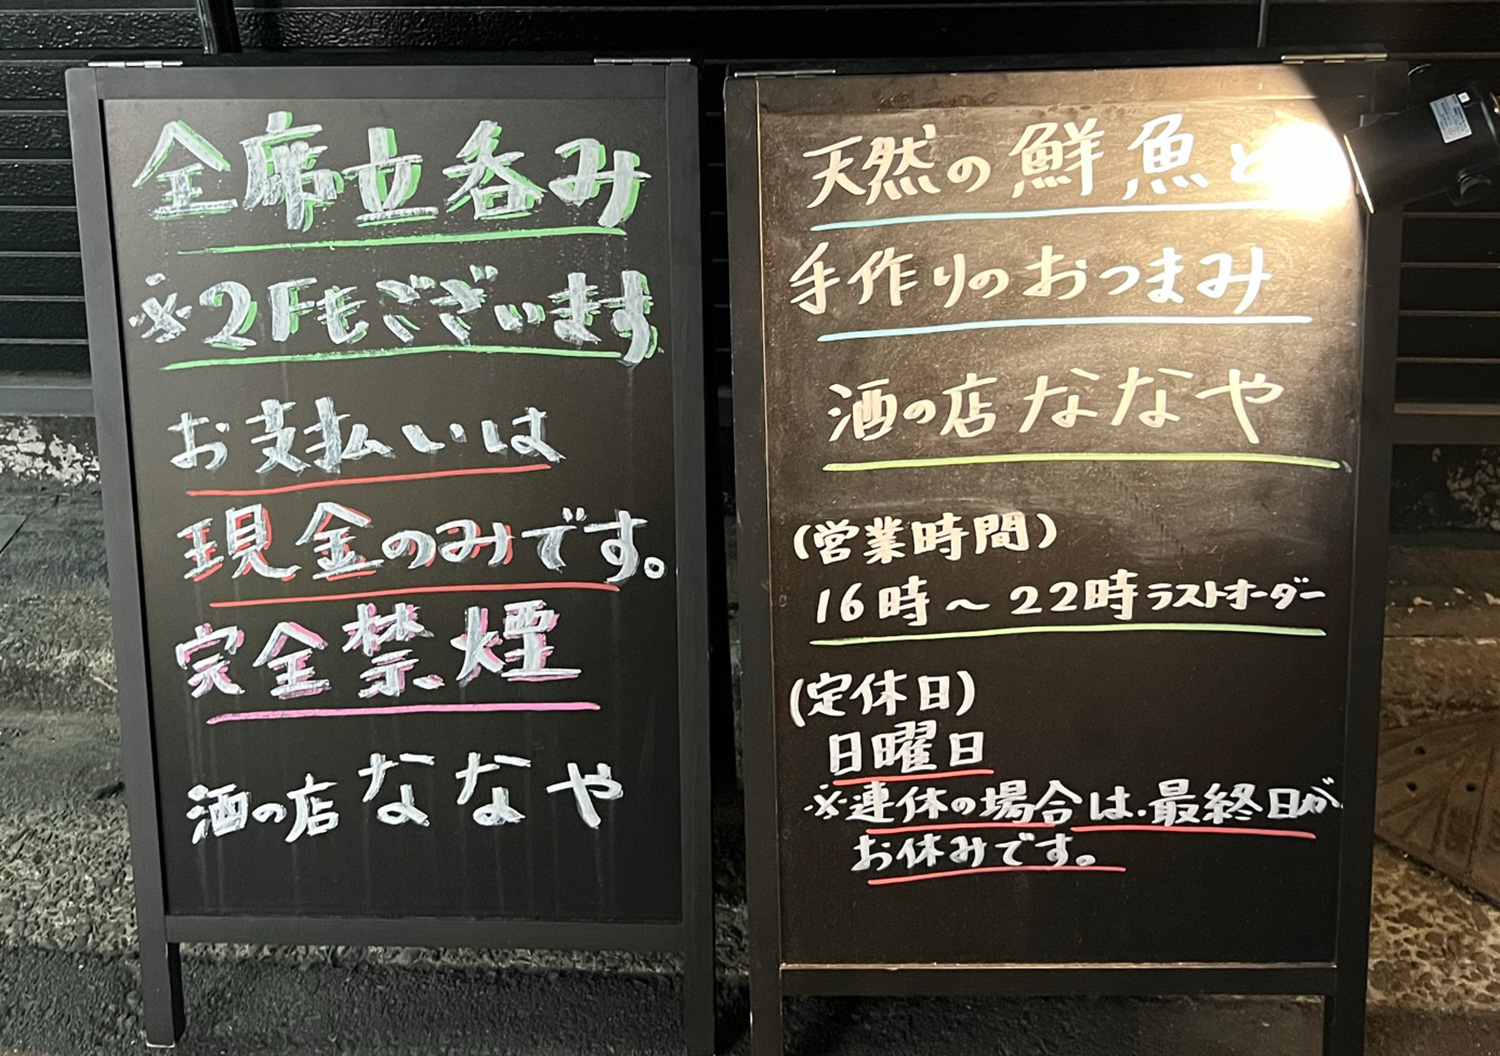 全席立呑み
※2Fもございます
お支払いは
現金のみです。
完全禁煙
酒の店ななや
天然の鮮魚と
手作りのおつまみ
酒の店ななや
(営業時間)
16時～22時ラストオーダー
(定休日)
日曜日
※連休の場合は、最終日が
お休みです。